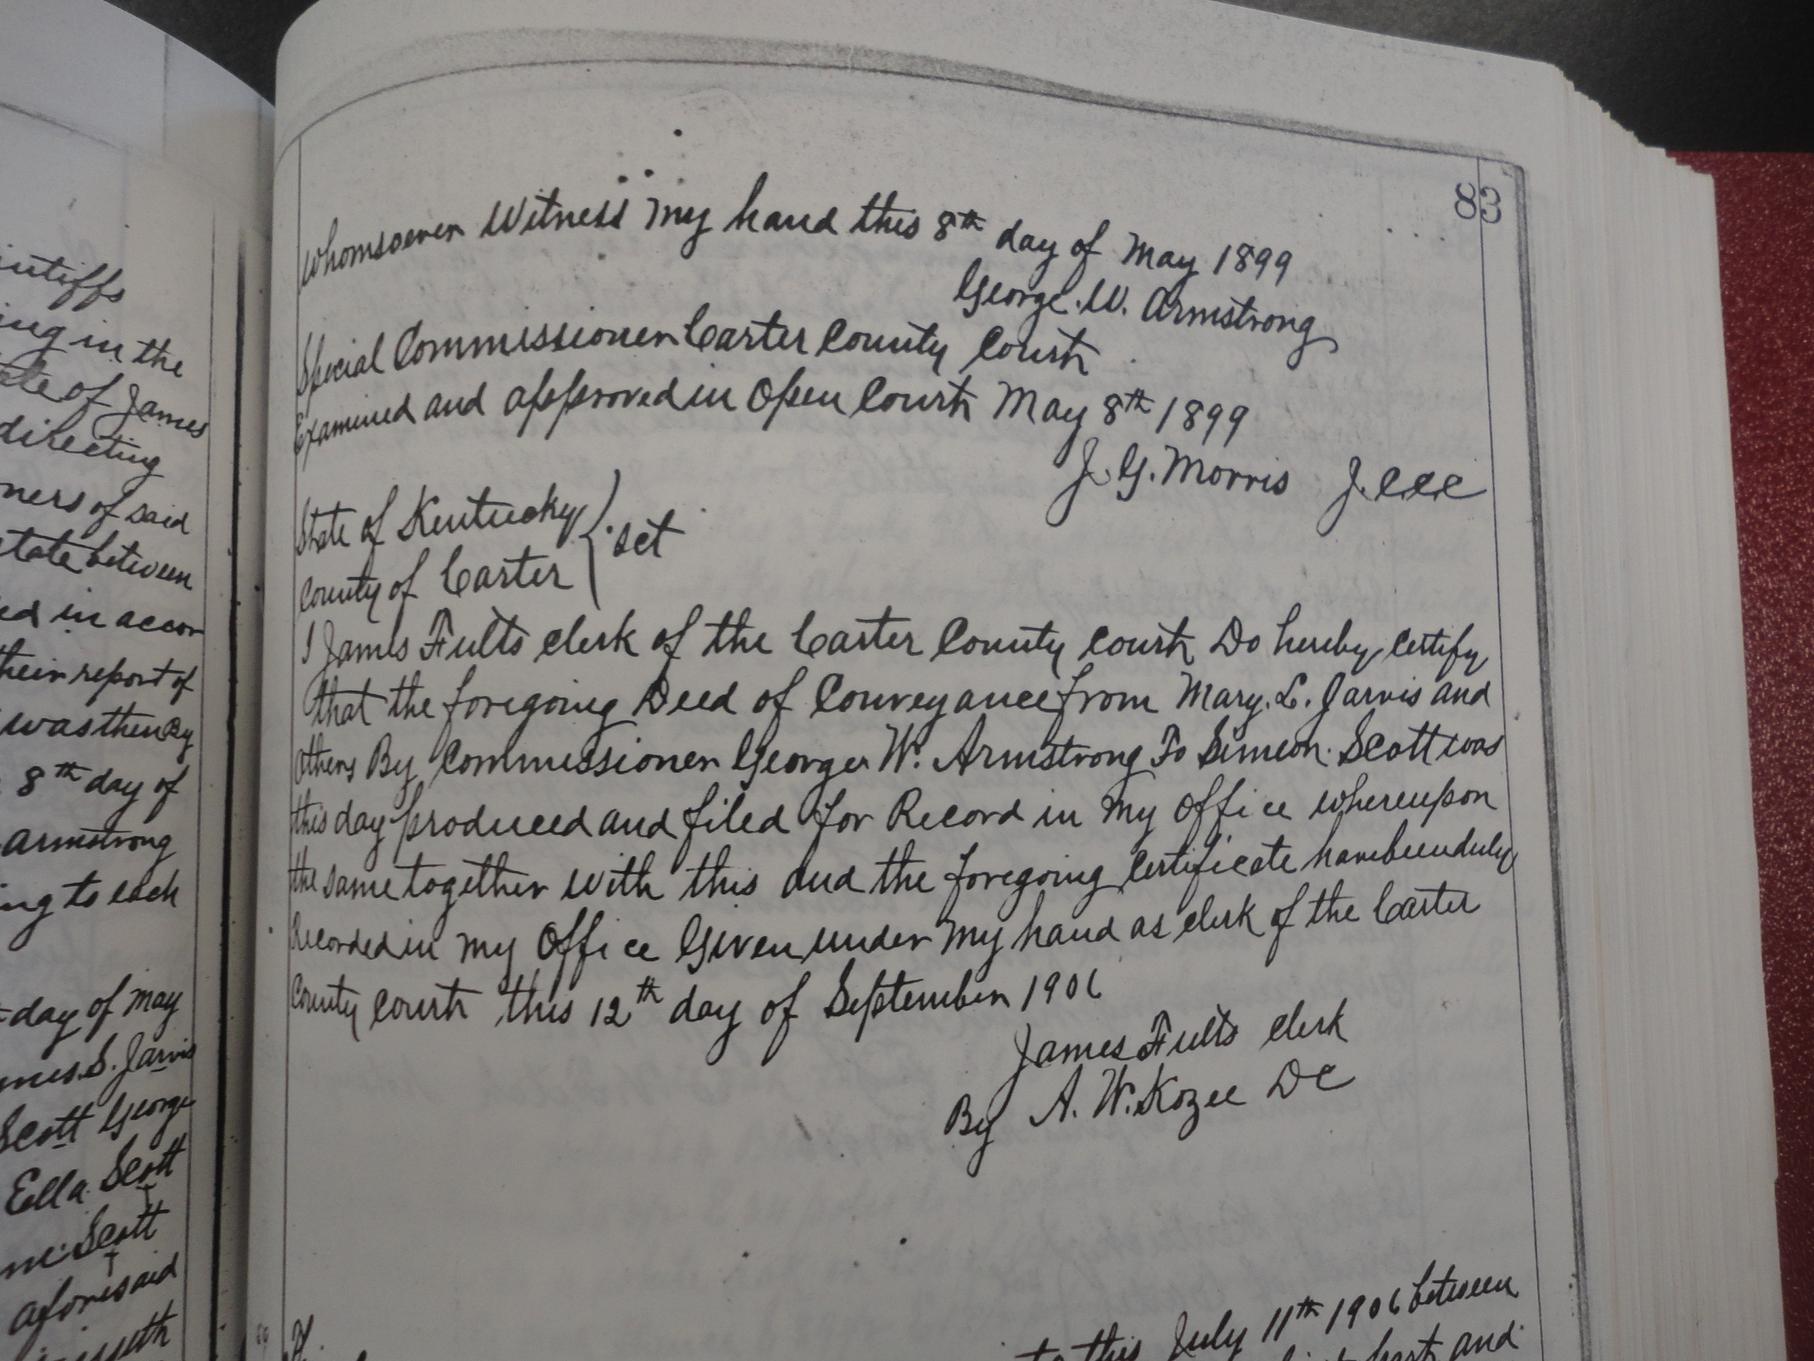 intiffs
ing in the
ate of James
directing
ners of said
state between
ed in accor
their report of
was then By
8th day of
Armstrong
ing to each
day of May
mes. S. Jarvis
Scott George
Ella Scott
me Scott
aforesaid
83
Whomsoever Witness my hand this 8th day of May 1899
George. W. Armstrong
Special Commissioner Carter County Court
Examined and approved in Open Court May 8th 1899
J. G. Morris J.C.C.C
State of Kentucky
County of Carter } sct
I James Fults clerk of the Carter County Court Do hereby certify
that the foregoing Deed of Conveyance from Mary. L. Jarvis and
others By Commissioner George W. Armstrong To Simeon Scott was
this day produced and filed for Record in my Office whereupon
the same together with this and the foregoing certificate have been duly
Recorded in my Office Given under my hand as clerk of the Carter
County Court this 12th day of September 1906
James Fults clerk
By A. W. Kozee DC
to this July 11th 1906 between
part and